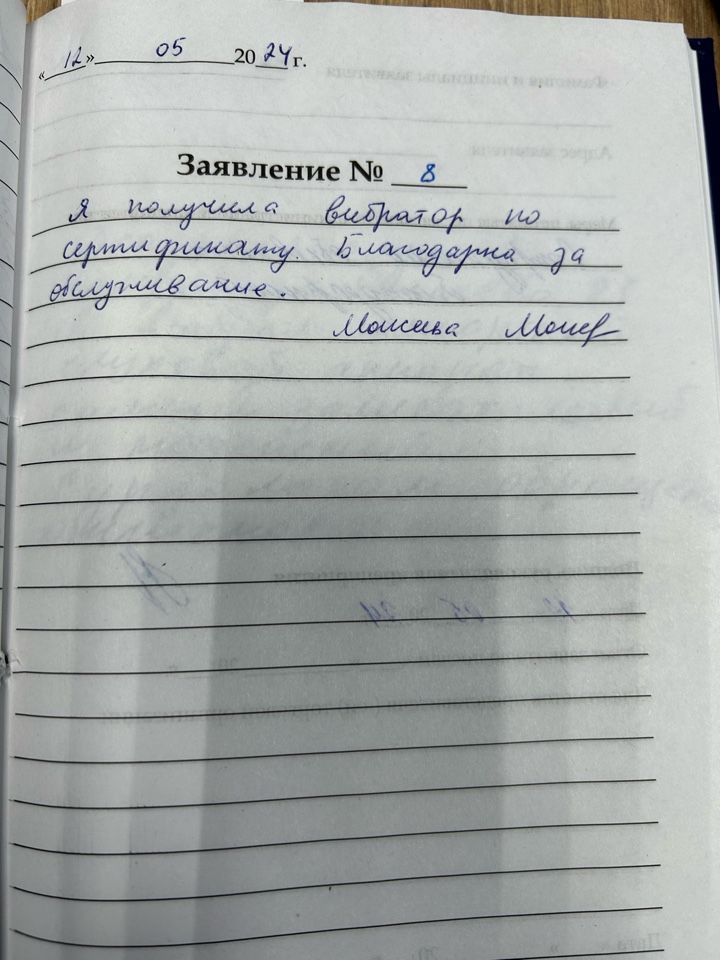 « 12 » 05 2024 г.
Заявление № 8
Я получила вибратор по
сертификату. Благодарна за
обслуживание.